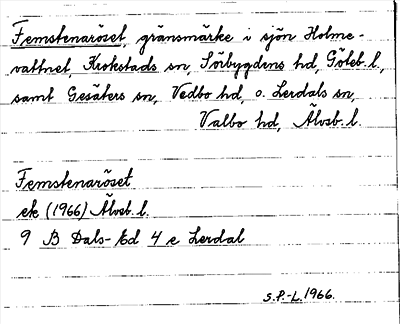 Femstenaröset, gränsmärke i sjön Holme-
vattnet, Krokstads sn, Sörbygdens hd, Göteb. l.,
samt Gesäters sn, Vedbo hd, o. Lerdals sn,
Valbo hd, Älvsb. l.
Femstenaröset
ek (1966) Älvsb. l.
9 B Dals-Ed 4 e Lerdal
S.P.-L. 1966.